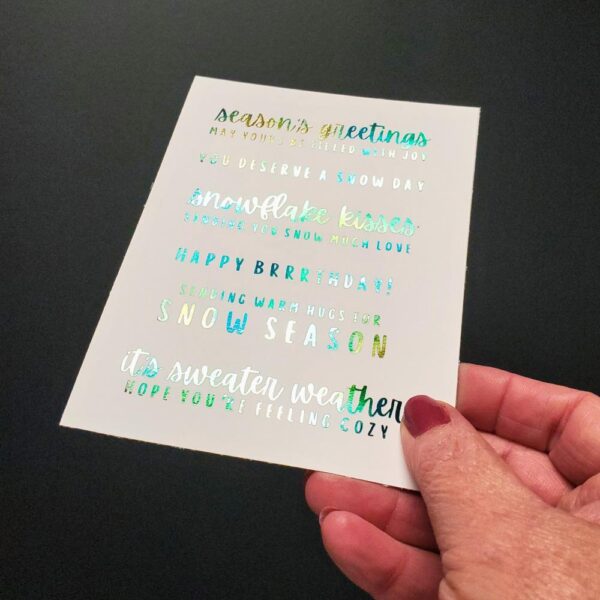 season's greetings
MAY YOURS BE FILLED WITH JOY
YOU DESERVE A SNOW DAY
snowflake kisses
SENDING YOU SNOW MUCH LOVE
HAPPY BRRRTHDAY!
SENDING WARM HUGS FOR
SNOW SEASON
it's sweater weather
HOPE YOU'RE FEELING COZY